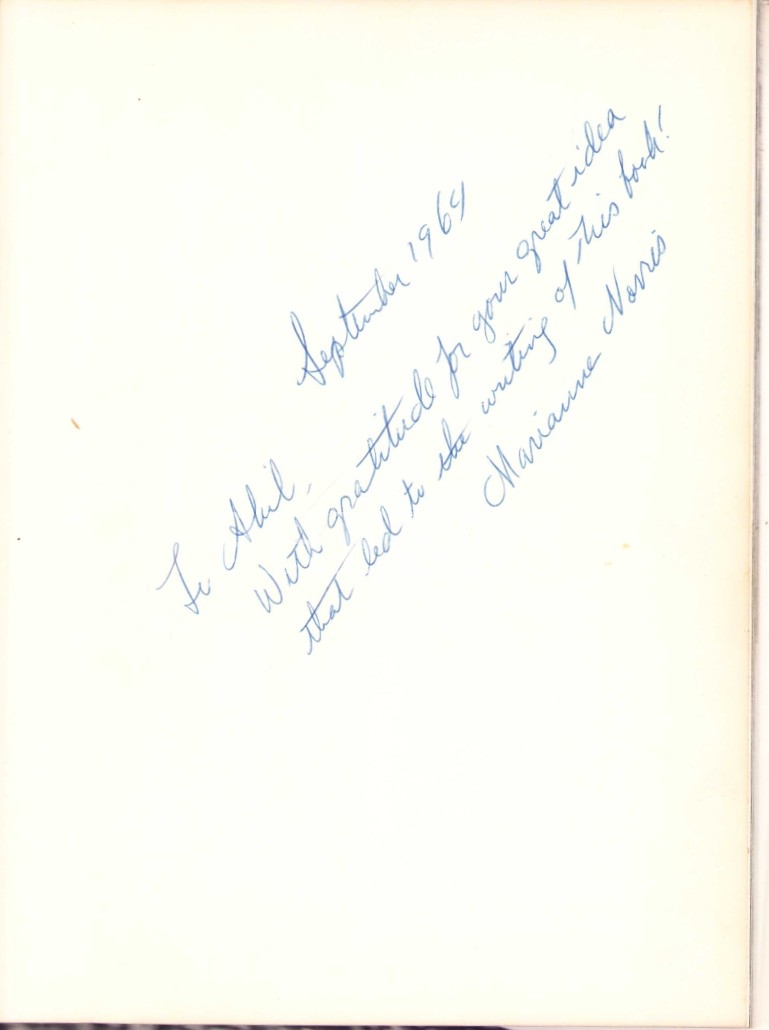 September 1964
To Akil,
With gratitude for your great idea
that led to the writing of this book!
Marianne Norris